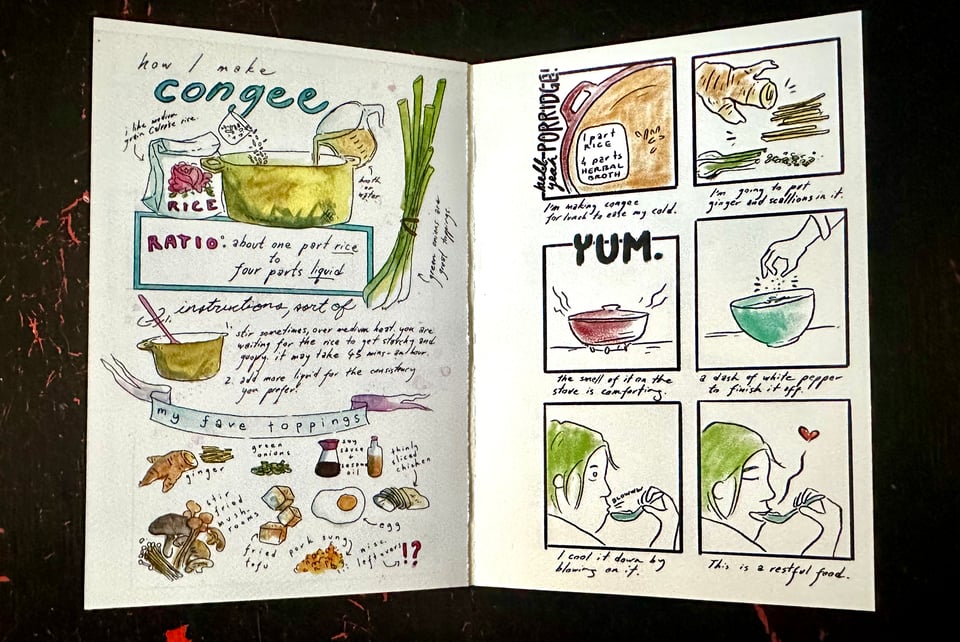 how I make
congee
i like medium
grain Calrose rice.
RICE
broth
or
water
green onions are
great toppings.
RATIO: about one part rice
to
four parts liquid
instructions, sort of
1. stir sometimes, over medium heat. you are
waiting for the rice to get starchy and
goopy. it may take 45 mins-an hour.
2. add more liquid for the consistency
you prefer.
my fave toppings
ginger
green
onions
soy
sauce
sesame
oil
thinly
sliced
chicken
stir
fried
mush-
rooms
fried
tofu
egg
pork sung
misc.
leftovers
!?
hell
yeah PORRIDGE!
1 part
RICE
4 parts
HERBAL
BROTH
I'm making congee
for lunch to ease my cold.
I'm going to put
ginger and scallions in it.
YUM.
the smell of it on the
stove is comforting.
a dash of white pepper
to finish it off!
BLOWWW
I cool it down by
blowing on it.
This is a restful food.